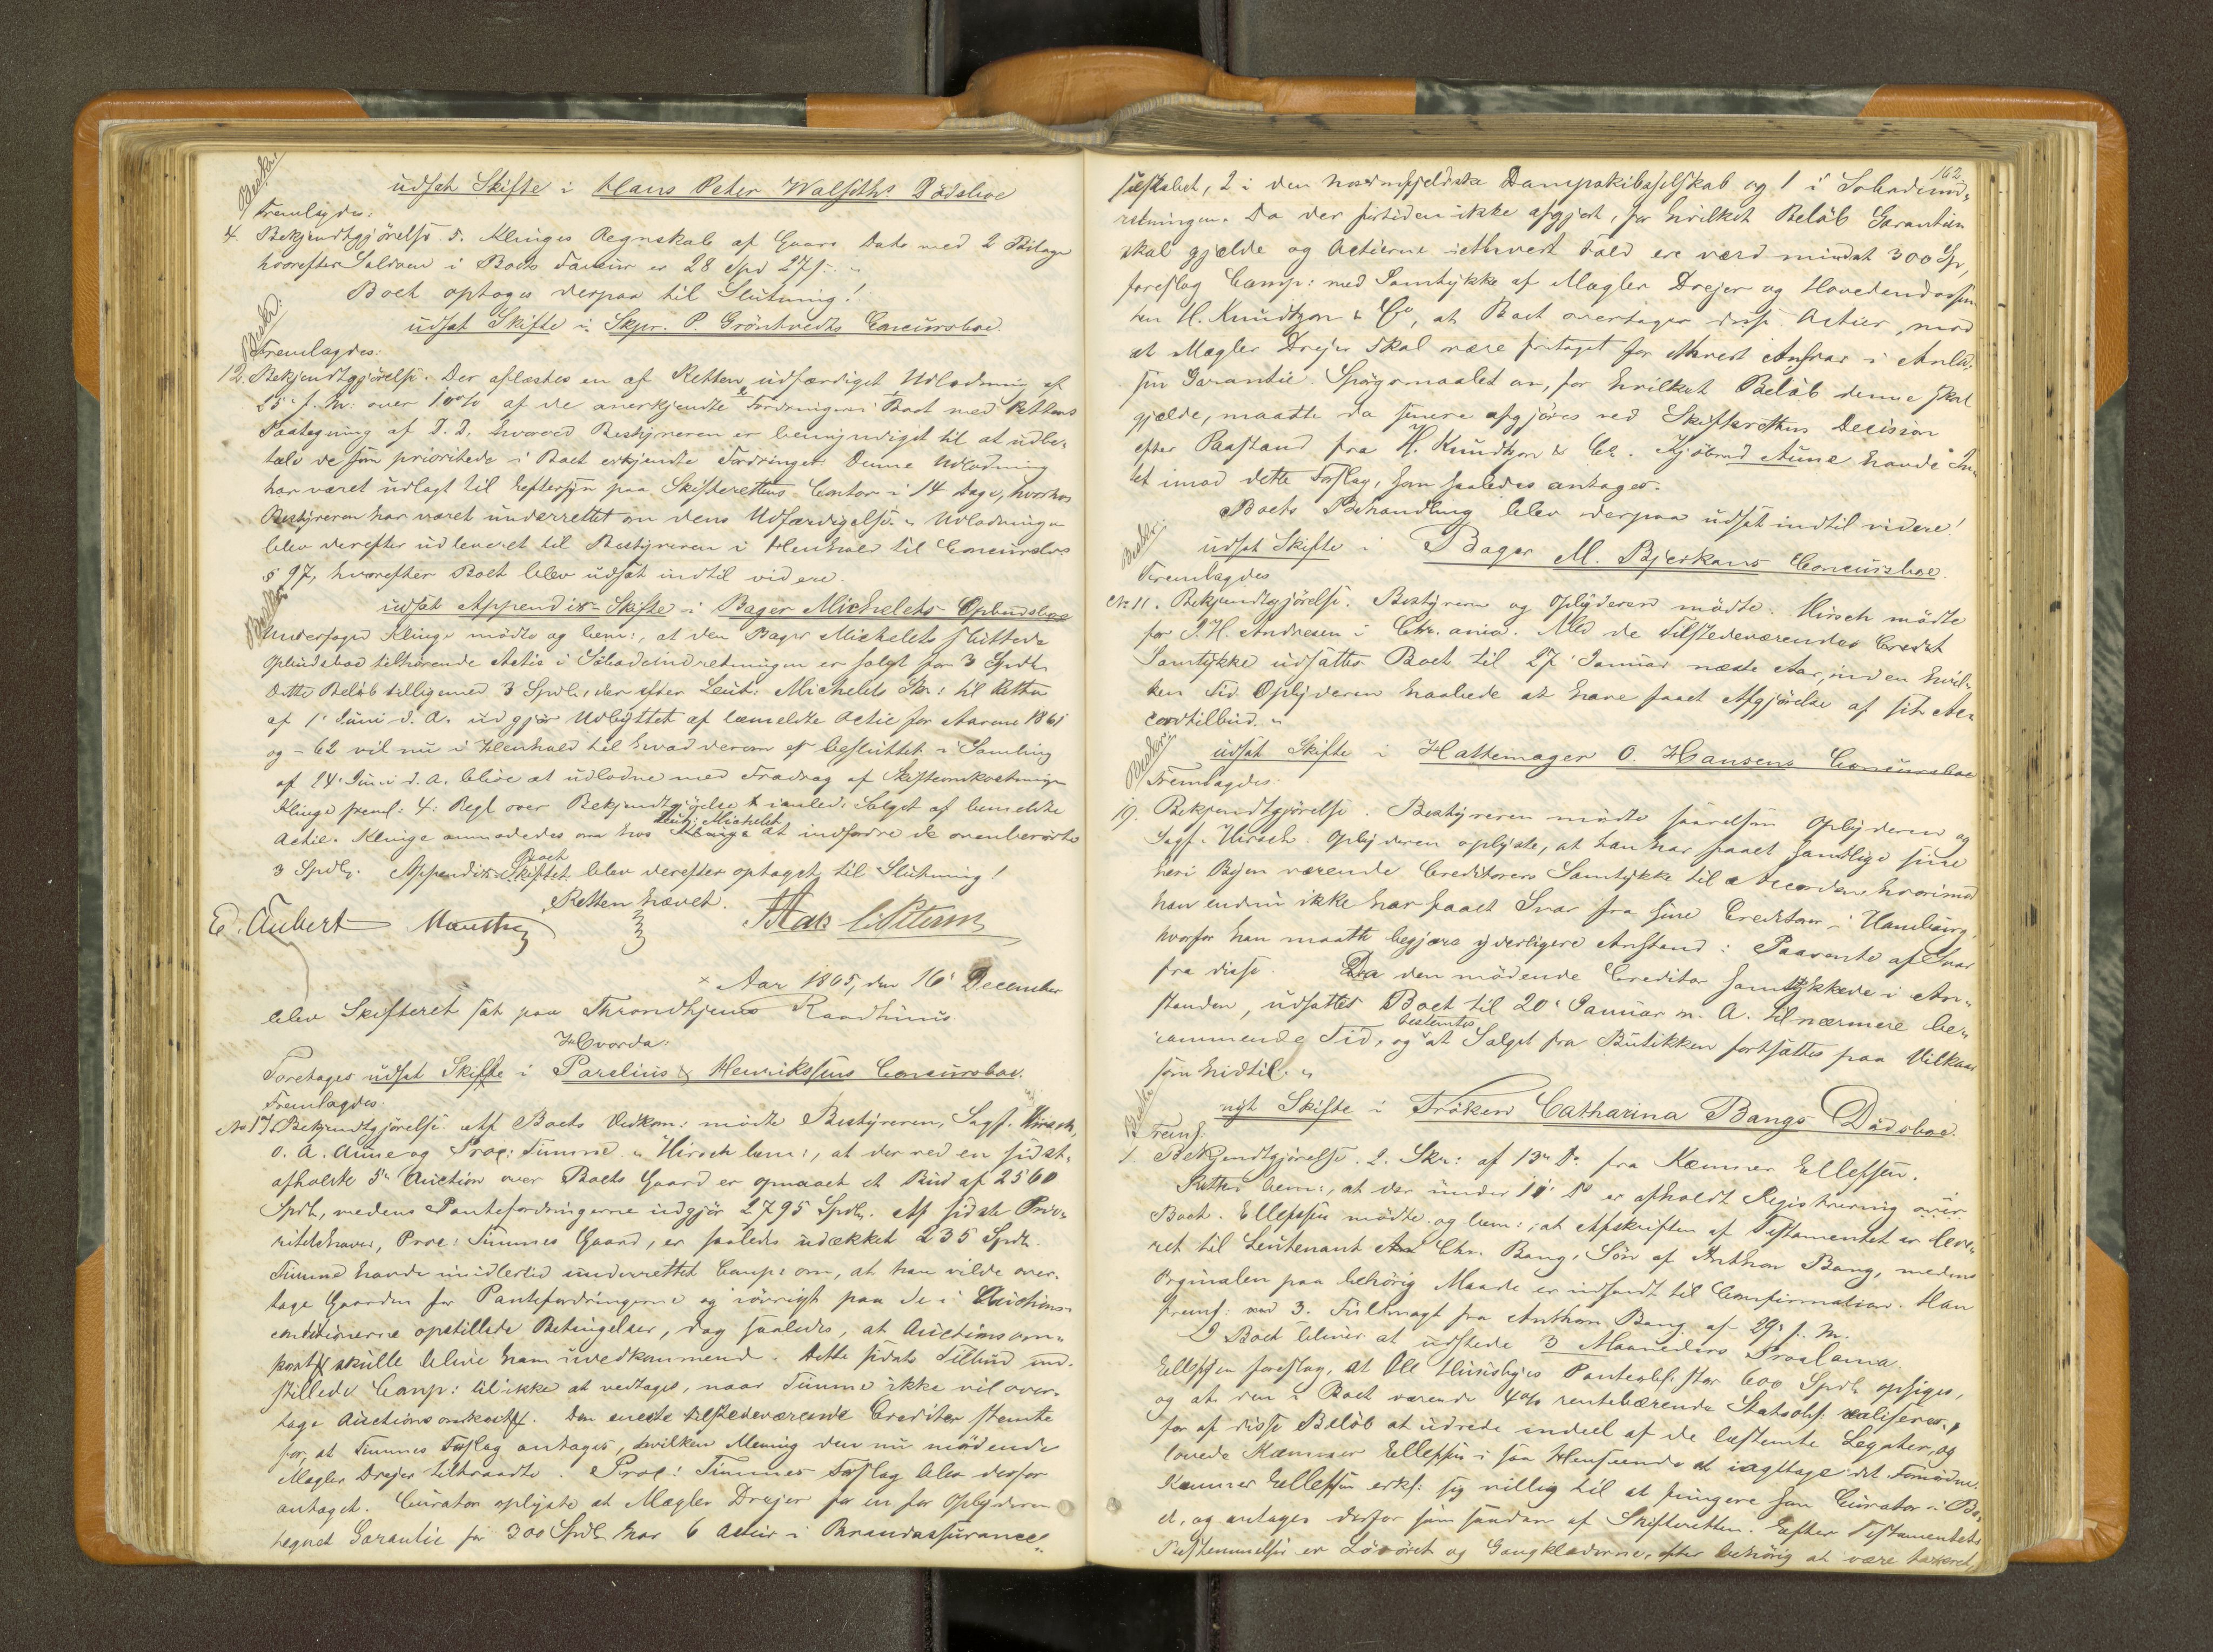 Beskr.
udsat Skifte i Hans Peter Walseths Dödsboe
Fremlagdes:
4. Bekjendtgjörelse 5. Klinges Regnskab af Gaars Dato med 2 Bilage
hvorefter Saldoen i Boets Faveur er 28 Spd 27 s. "
Boet optoges derpaa til Slutning!
Beskr:
udsat Skifte i Skpr. P. Gröntvedts Concursboe.
Fremlagdes:
12. Bekjendtgjörelse. Der aflæstes en af Retten udfærdiget Udlodning af
25' f. M. over 10% af de anerkjendte Fordringer i Boet med Rettens
Paategning af D. D. hvorved Bestyreren er bemyndiget til at udbe-
tale de som prioritede i Boet erkjendte Fordringer. Denne Udlodning
har været udlagt til Eftersyn paa Skifterettens Contor i 14 Dage, hvorhos
Bestyreren har været underrettet om dens Udfærdigelse. " Udlodningen
blev derefter udleveret til Bestyreren i Henhold til Concurslov
§ 97, hvorefter Boet blev udsat indtil videre.
Beskr.
udsat Appendix-Skifte i Bager Michelets Opbudsboe
Undersaged Klinge mödte og bem:, at den Bager Michelets sluttede
Opbudsboe tilhörende Actie i Söbadeindretningen er solgt for 3 Spdlr.
Dette Belöb tilligemed 3 Spdlr, der efter Leut: Michelets Skr: til Retten
af 1' Juni d. A. udgjör Udbyttet af bemeldte Actie for Aarene 1861
og -62 vil nu i Henhold til hvad derom er besluttet i Samling
af 24' Juni d. A. blive at udlodne med Fradrag af Skifteomkostninger
Klinge freml: 4: Regl over Bekjendtgjörelse i anled: Salget af bemeldte
Leut: Michelet
Actie. Klinge anmodedes om hos at indfordre de ovenberörte
Boet
3 Spdlr. Appendix-Skiftet blev derefter optaget til Slutning!
Retten hævet.
E. Aubert
Aar 1865, den 16' December
blev Skifteret sat paa Throndhjems Raadhuus
Hvorda:
Foretages udsat Skifte i Parelius & Henrikssens Concursboe.
Fremlagdes.
No 17. Bekjendtgjörelse. Af Boets Vedkom: mödte Bestyreren, Sagf. Hirsch,
O. A. Aune og Proc: Timme. " Hirsch bem:, at der ved en sidst-
afholdt 5te Auction over Boets Gaard er opnaaet et Bud af 2560
Spdl, medens Pantefordringerne udgjör 2795 Spdlr. Af sidste Prio-
ritetshaver, Proc: Timmes Gaard, er saaledes udækket 235 Spdlr.
Timme havde imidlertid underrettet Comp: om, at han vilde over-
tage Gaarden for Pantefordringerne og iövrigt paa de i Auctions-
conditionerne opstillede Betingelser, dog saaledes, at Auctionsom-
kost skulle blive ham uvedkommende. Dette sidste Tilbud ind-
stillede Comp: til ikke at vedtages, naar Timme ikke vil over-
tage Auctionsomkost. Den eneste tilstedeværende Creditor stemte
for, at Timmes Forslag antages, hvilken Mening den nu mödende
Mægler Drejer tiltraadte. Proc: Timmes Forslag blev derfor
antaget. Curator oplyste at Mægler Drejer for en for Opbyderen
tegnet Garantie for 300 Spdlr har 6 Actier i Brandassurance-
162.
selskabet, 2 i den nordenfjeldske Dampskibsselskab og 1 i Söbadeind-
retningen. Da der fortiden ikke afgjort, for hvilket Belöb Garantien
skal gjælde og Actierne i ethvert Fald ere værd mindst 300 Sp,
foreslog Comp: med Samtykke af Mægler Drejer og Hovedendossen-
ten H. Knudtzon & Co, at Boet overtager disse Actier, mod
at Mægler Drejer skal være fritaget for ethvert Ansvar i Anled-
sin Garantie. Spörgsmaalet om, for hvilket Belöb denne skal
gjælde, maatte da senere afgjöres ved Skifterettens Decision
efter Paastand fra H. Knudtzon & Co. Kjöbmd Aune havde In-
tet imod dette Forslag, som saaledes antages.
Boets Behandling blev derpaa udsat indtil videre!
Beskr:
udsat Skifte i Bager M. Bjerkans Concursboe.
Fremlagdes
No 11. Bekjendtgjörelse. Bestyreren og Opbyderen mödte. Hirsch mödte
for J. H. Andresen i Chr.ania. Med de Tilstedeværendes Credit
Samtykke udsattes Boet til 27' Januar næste Aar, inden hvil-
ken Tid Opbyderen haabede at have faaet Afgjörelse af sit Ac-
cordtilbud. "
Beskr:
udsat Skifte i Hattemager O. Hansens Concursboe
Fremlagdes
19. Bekjendtgjörelse. Bestyreren mödte saavelsom Opbyderen og
Sagf. Hirsch. Opbyderen oplyste, at han har faaet samtlige sine
heri Byen værende Creditorers Samtykke til Accorden hvorimod
han endnu ikke har faaet Svar fra sine Creditorer i Hamburg.
hvorfor han maatte begjære yderligere Anstand i Paavente af Svar
fra disse. Da den mödende Creditor samtykkede i An-
standen, udsattes Boet til 20' Januar n. A. til nærmere be-
bestemtes
rammende Tid, og at Salget fra Butikken fortsattes paa Vilkaar
som hidtil. "
Beskr.
nyt Skifte i Fröken Catharina Bangs Dödsboe.
Freml.
1 Bekjendtgjörelse. 2. Skr: af 13de Ds. fra Kæmner Ellefsen.
Retten bem:, at der under 11' Ds er afholdt Registrering over
Boet. Ellefsen mödte og bem:, at Afskriften af Testamentet er leve-
ret til Leutenant Chr. Bang, Sön af Anthon Bang, medens
Orginalen paa behörig Maade er indsendt til Confirmation. Han
freml: ved 3. Fuldmagt fra Anthon Bang af 29' f. M.
I Boet bliver at udstede 3 Maaneders Proclama.
Ellefsen foreslog, at Ole Huusbyes Panteobl. stor 600 Spdlr opsiges,
og at den i Boet værende 4% rentebærende Statsobl. realiseres,
for af disse Belöb at udrede endeel af de bestemte Legater, og
lovede Kæmner Ellefsen i saa Henseende at iagttage det Fornödne.
Kæmner Ellefsen erkl: sig villig til at fungere som Curator i Bo-
et, og antages derfor som saadan af Skifteretten. Efter Testamentets
Bestemmelser er Lösöret og Gangklæderne, efter behörig at være taxeret,